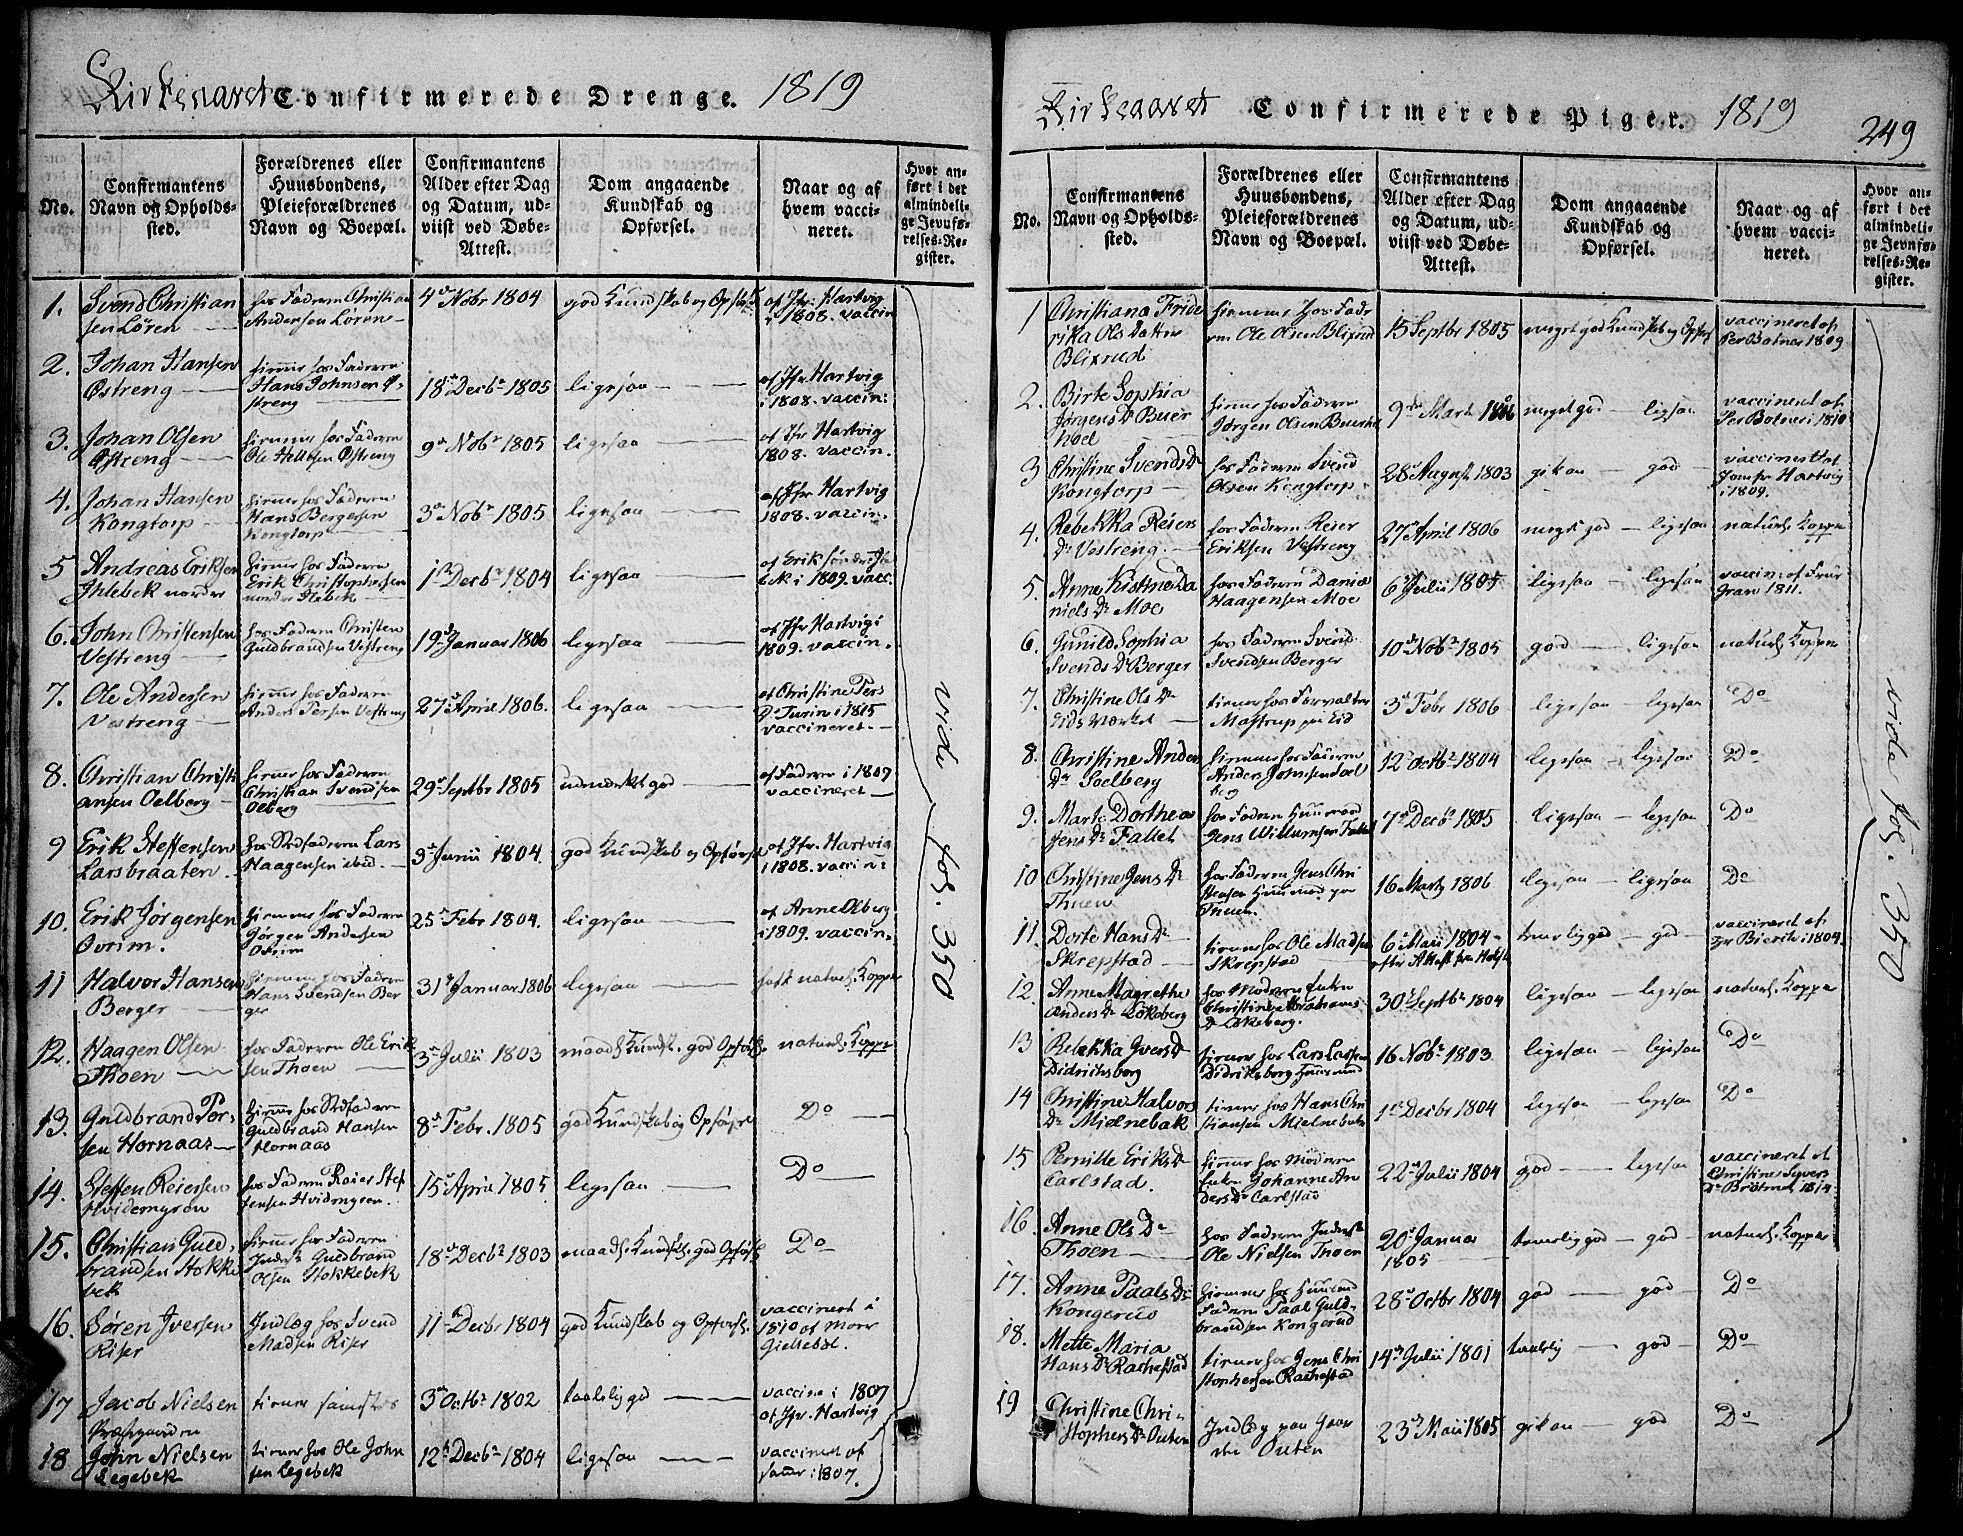 Kirkeaaret Confirmerede Drenge. 1819
No.
Confirmantens
Navn og Opholds-
sted.
Forældrenes eller
Huusbondens,
Pleieforældrenes
Navn og Boepæl.
Confirmantens
Alder efter Dag
og Datum, ud-
viist ved Døbe-
Attest.
Dom angaaende
Kundskab og
Opførsel.
Naar og af
hvem vacci-
neret.
Hvor an-
ført i det
almindeli-
ge Jevnfø-
relses-Re-
gister.
1. Svend Christian
sen Løren
hos Faderen Christian
Andersen Løren
4de Nobr 1804
god Kundskab og Opførs.
af Jfr. Hartvig
i 1808. vaccin
2. Johan Hansen
Østreng
hiemme hos Faderen
Hans Johnsen Ø-
streng
18de Decbr 1805
ligesaa
af Jfr. Hartvig
i 1808. vaccin:
3. Johan Olsen
Østreng
hiemme hos Faderen
Ole Østreng
9de Nobr 1805
ligesaa
af Jfr Hartvig
1808. vaccin.
4. Johan Hansen
Kongtorp
hiemme hos Faderen
Hans Bergersen
Kongtorp
3de Nobr 1805
ligesaa
af Jfr Hartvig
1808. vaccin.
5 Andreas Eriksen
Ihlebek nordre
hiemme hos Faderen
Erik Christophersen
nordre Ilebek
1ste Decbr 1804
ligesaa
af Erik
bek i 1809. vacc.
6. John Christensen
Vestreng
hos Faderen Christen
Guldbrandsen Vestreng
19de Januar 1806
ligesaa
af Jfr Hartvig i
1809. vaccin.
7. Ole Andersen
Vestreng
hiemme hos Faderen
Anders Persen Vestreng
27de April 1806.
ligesaa
af Christine Pers
Dr Turin i 1815
vaccineret.
8. Christian Christi
ansen Oelberg
hiemme hos Faderen
Christian Svendsen
Oelberg
29de Septbr 1805
udmerket god
af Faderen i 1809
vaccineret
9 Erik Steffensen
Larsbraaten.
hos Stedfaderen Lars
Haagensen ibid.
3de Junii 1804.
god Kundskab og Opførsel
af Jfr. Hartvig
i 1808. vaccin:
10. Erik Jørgensen
Ovrim.
hiemme hos Faderen
Jørgen Andersen
Ovrim
25de Febr 1804.
ligesaa
af Anne Olberg
i 1809. vaccin.
11 Halvor Hansen
Berger
hiemme hos Faderen
Hans Svendsen Ber
ger
31te Januar 1806
ligesaa
haft naturl. Kopper
12. Haagen Olsen
Thoen
hos Faderen Ole Erik
sen Thoen
3de Julii 1803
maadl. Kundsk. god Opførs.
naturl. Kopper
13. Guldbrand Per-
sen Hornaas
hiemme hos Stedfaderen
Guldbrand Hansen
Hornaas
8de Febr. 1805
god Kundskab og Opførsel
Do
14. Steffen Reiersen
Hvidemyren
hos Faderen Reier Stef
fensen Hvidmyren.
15de April 1805
ligesaa
Do
15. Christian Guld-
brandsen Stokke
bek
hiemme hos Faderen
Inderst Guldbrand
Olsen Stokkebek
18de Decbr 1803
maadl. Kundsk. god Opførs.
Do
16. Søren Iversen
Riser
Indlæg hos Svend
Madsen Riser
11te Decbr 1804
god Kundskab og Opførsel.
vaccineret i
1810 af Moer
Giellebøl.
17 Jacob Nielsen
Præsgaarden
tiener samsteds
3de Octbr 1802
taalelig god
vaccine i 1807
af Jfr. Hartvig
18 John Nielsen
Legebek
tiener hos Ole John
sen Legebek
12te Decbr 1804
ligesaa
vaccineret af
samme i 1807.
vide fol. 350
Kirkeaaret Confirmerede Piger. 1819
249
No.
Confirmantens
Navn og Opholds-
sted.
Forældrenes eller
Huusbondens,
Pleieforældrenes
Navn og Boepæl.
Confirmantens
Alder efter Dag
og Datum, ud-
viist ved Døbe-
Attest.
Dom angaaende
Kundskab og
Opførsel.
Naar og af
hvem vacci-
neret.
Hvor an-
ført i det
almindeli-
ge Jevnfø-
relses-Re-
gister.
1 Christiana Fride
rika Ols Datter
Blixrud
hiemme hos Fade
ren Ole Olsen Blixrud
15 Septbr 1805
meget god Kundskab og Opførs
vaccineret af
Per Botner 1809
2. Birte Sophia
Jørgens Dr Buer
hiemme hos Faderen
Jørgen Olsen
9de Marts 1806
meget god — ligesaa
vaccineret af
Per Botner i 1810
3 Christine Svends Dr
Kongtorp
hos Faderen Svend
Olsen Kongtorp
28de August 1803
gikan — god
vaccineret af
Jomfr Hartvig
i 1809.
4. Rebekka Reiers
Dr Vestreng.
hos Faderen Reier
Eriksen Vestreng
27de April 1806
meget god — ligesaa
naturl. Kopper
5. Anne Kistine Da
niels Dr Moe
hos Faderen Daniel
Haagensen Moe
6te Julii 1805
ligesaa — ligesaa
vaccin. af Frue
Gran 1811.
6. Gunild Sophia
Svends Dr Berger
hos Faderen Svend
Svendsen Berger
10de Nobr 1805
god — ligesaa
naturl. Kopper
7. Christine Ols Dr
Eidsværket
tiener hos Forvalter
Mastrup paa Eid
3de Febr 1806
ligesaa — ligesaa
Do
8. Christine Anders
Dr Soelberg
hiemme hos Faderen
Anders Johnsen Soel
berg
12te Octbr 1804
ligesaa — ligesaa
Do
9. Marte Dorthea
Jens Dr Fallet
hos Faderen Huusmand
Jens Willumsen Fallet
17de Decbr 1805
ligesaa — ligesaa
Do
10 Christine Jens Dr
Thuen
hos Faderen Jens Chri
stensen Huusmand paa
Thuen.
16 Marts 1806
ligesaa — ligesaa
Do
11. Dorte Hans Dr
Skrepstad
tiener hos Ole Madsen
Skrepstad
6te Maii 1804
efter Attest fra Holst
temelig god — god
vaccineret af
Hr i 1804.
12. Anne Magrethe
Anders Dr Løkeberg
hos Moderen Enken
Christine Abrahams
Dr Akeberg.
30te Septbr 1804
ligesaa — ligesaa
naturl. Kopper
13 Rebekka Ivers Dr
Didrichsborg
tiener hos Lars Larsen
Didriksborg Huusmand
16 Nobr 1803
ligesaa — ligesaa
Do
14 Christine Halvors
Dr Mielnebak
tiener hos Hans Chri
stiansen Mielnebak
1ste Decbr 1804
ligesaa — ligesaa
Do
15 Pernille Eriks Dr
Carlstad.
hiemme hos Moderen
Enken Johanne An
ders Dr Carlstad
22de Julii 1804
god — ligesaa
vaccineret af
Christine Syvers
Dr 1814
16. Anne Ols Dr
Thoen
hos Faderen Inderst
Ole Nielsen Thoen
20de Januar
1805
temelig god — god
naturl. Kopper
17. Anne Paals Dr
Kongerud
hiemme hos Huusmd
Faderen Paal Guld-
brandsen Kongerud
28de Octbr 1804
god — god
Do
18. Mette Maria
Hans Dr Rachestad
tiener hos Jens Chri
stophersen Rachestad
14de Julii 1801
taalelig — god
Do
19 Christine Chri-
stophers Dr Outen
Indlæg paa Gaar
den Outen
23de Maii 1805
gikan — god
Do
vide fol. 350